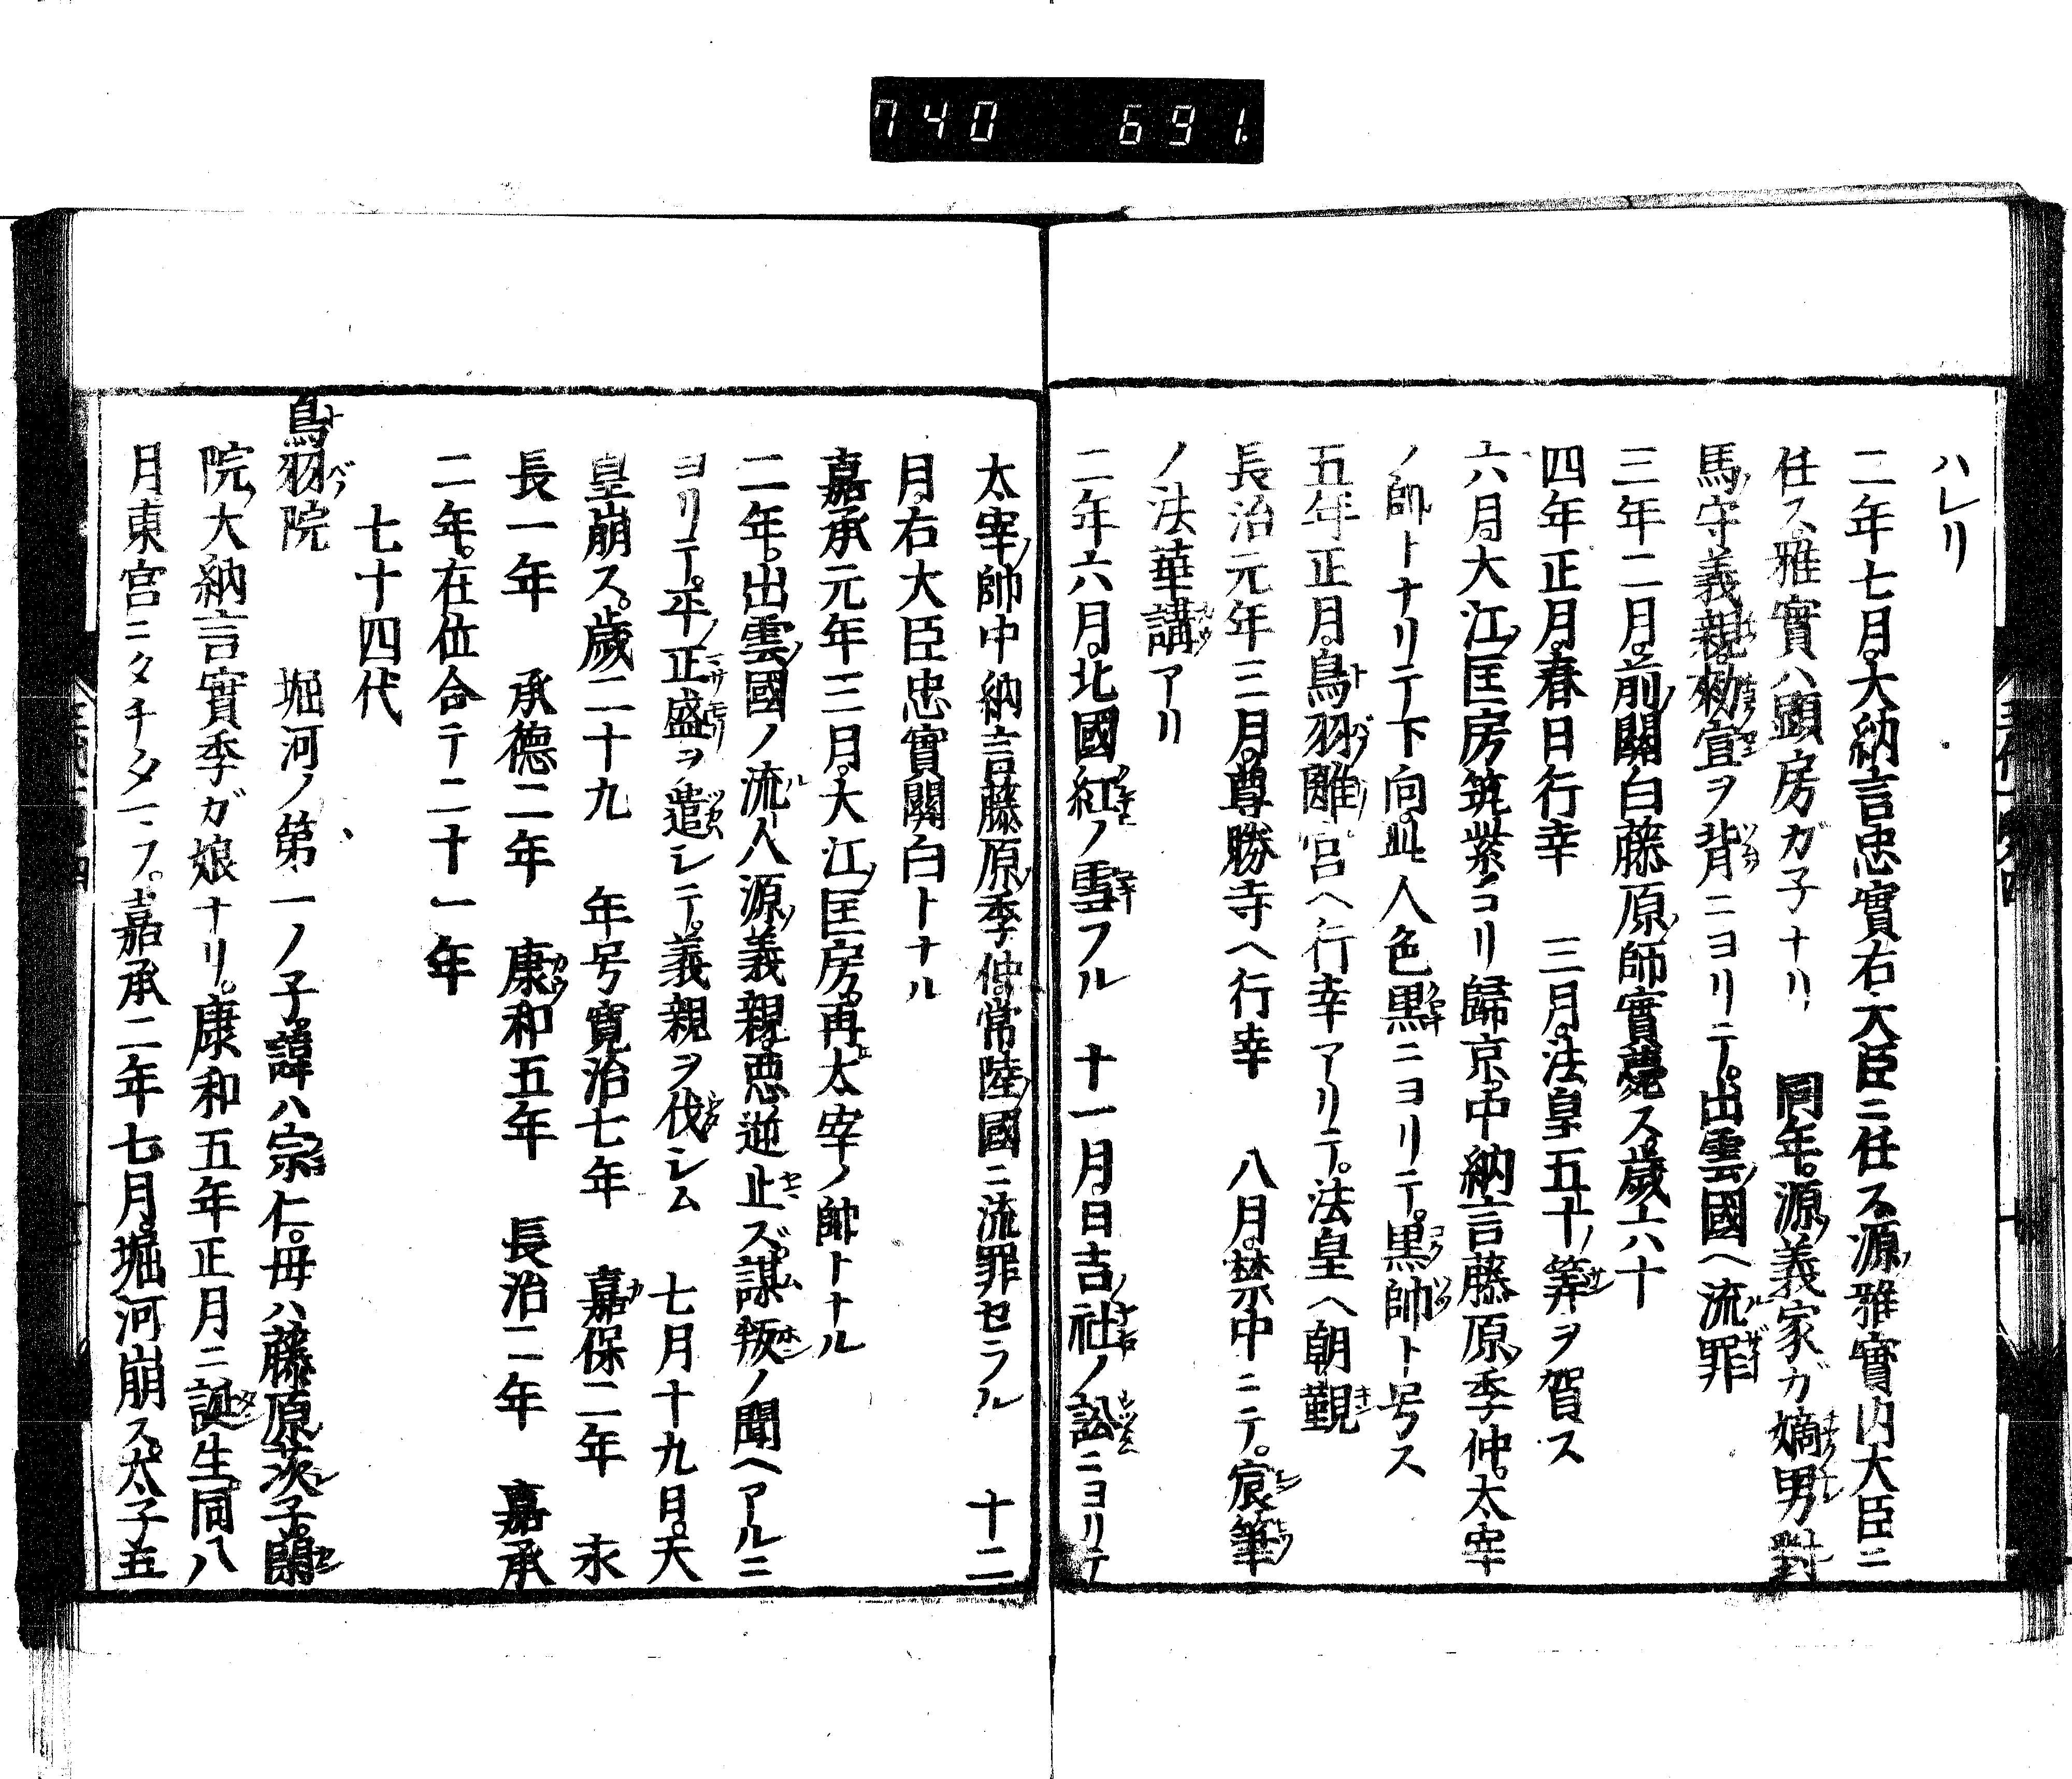 740 691.
ハレリ
二年七月。大納言忠實右大臣ニ任ス。源雅實内大臣ニ
任ス。雅實ハ顕房ガ子ナリ 同年。源義家ガ嫡男對
馬守義親勅宣ヲ背ニヨリテ。出雲國ヘ流罪
三年二月。前關白藤原師實薨ス。歲六十
四年正月。春日行幸 三月。法皇五十ノ筭ヲ賀ス
六月。大江匡房筑紫ヨリ歸京。中納言藤原季仲。太宰
ノ帥トナリテ下向。此人色黒ニヨリテ。黒帥ト号ス
五年正月。鳥羽離宮ヘ行幸アリテ。法皇ヘ朝覲
長治元年三月。尊勝寺ヘ行幸 八月。禁中ニテ。宸筆
ノ法華講アリ
二年六月。北國紅ノ雪フル 十一月。日吉社ノ訟ニヨリテ
太宰帥中納言藤原季仲常陸國ニ流罪セラル 十二
月。右大臣忠實關白トナル
嘉承元年三月。大江匡房。再太宰ノ帥トナル
二年。出雲國ノ流人源義親。悪逆止ズ。謀叛ノ聞ヘアルニ
ヨリテ。平正盛ヲ遣シテ。義親ヲ伐シム 七月十九月。天
皇崩ス。歲二十九 年号寛治七年 嘉保二年 永
長一年 承德二年 康和五年 長治二年 嘉承
二年。在位合テ二十一年
七十四代
鳥羽院 堀河ノ第一ノ子。諱ハ宗仁。母ハ藤原茨子。閑
院大納言實季ガ娘ナリ。康和五年正月ニ誕生。同八
月東宮ニタチタマフ。嘉承二年七月。堀河崩ス。太子五